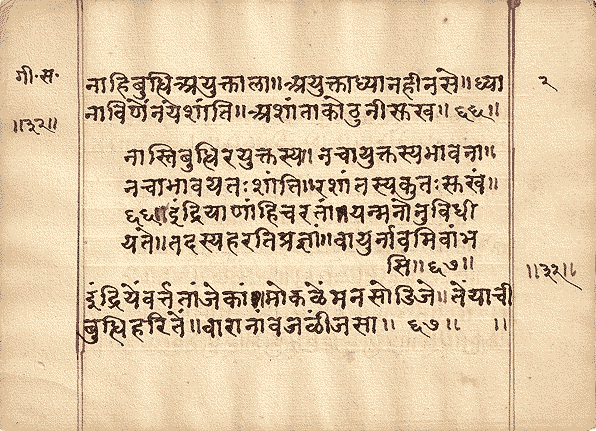 गी॰स॰
॥३२॥
नाहिबुध्धिअयुक्ताला॥अयुक्ताध्यानहीनसे॥ध्या
नाविणेंनयेशांति॥अशांताकोठुनीसूख॥६६॥
नास्तिबुध्धिरयुक्तस्य॥नचायुक्तस्यभावना॥
नचाभावयतःशांति॥रशांतस्यकुतःसूखं॥
६६॥इंद्रियाणांहिचरतां॥यन्मनोनुविधी
यते॥तदस्यहरतिप्रज्ञां॥वायुर्नावमिवांभ
सि॥६७॥
इंद्रियेंवर्त्ततांजेकां॥मोकळेंमनसोडिजे॥लेंयाची
बुध्धिहरितें॥वारानांवजळींजसा॥६७॥ ॥
२
॥३२॥